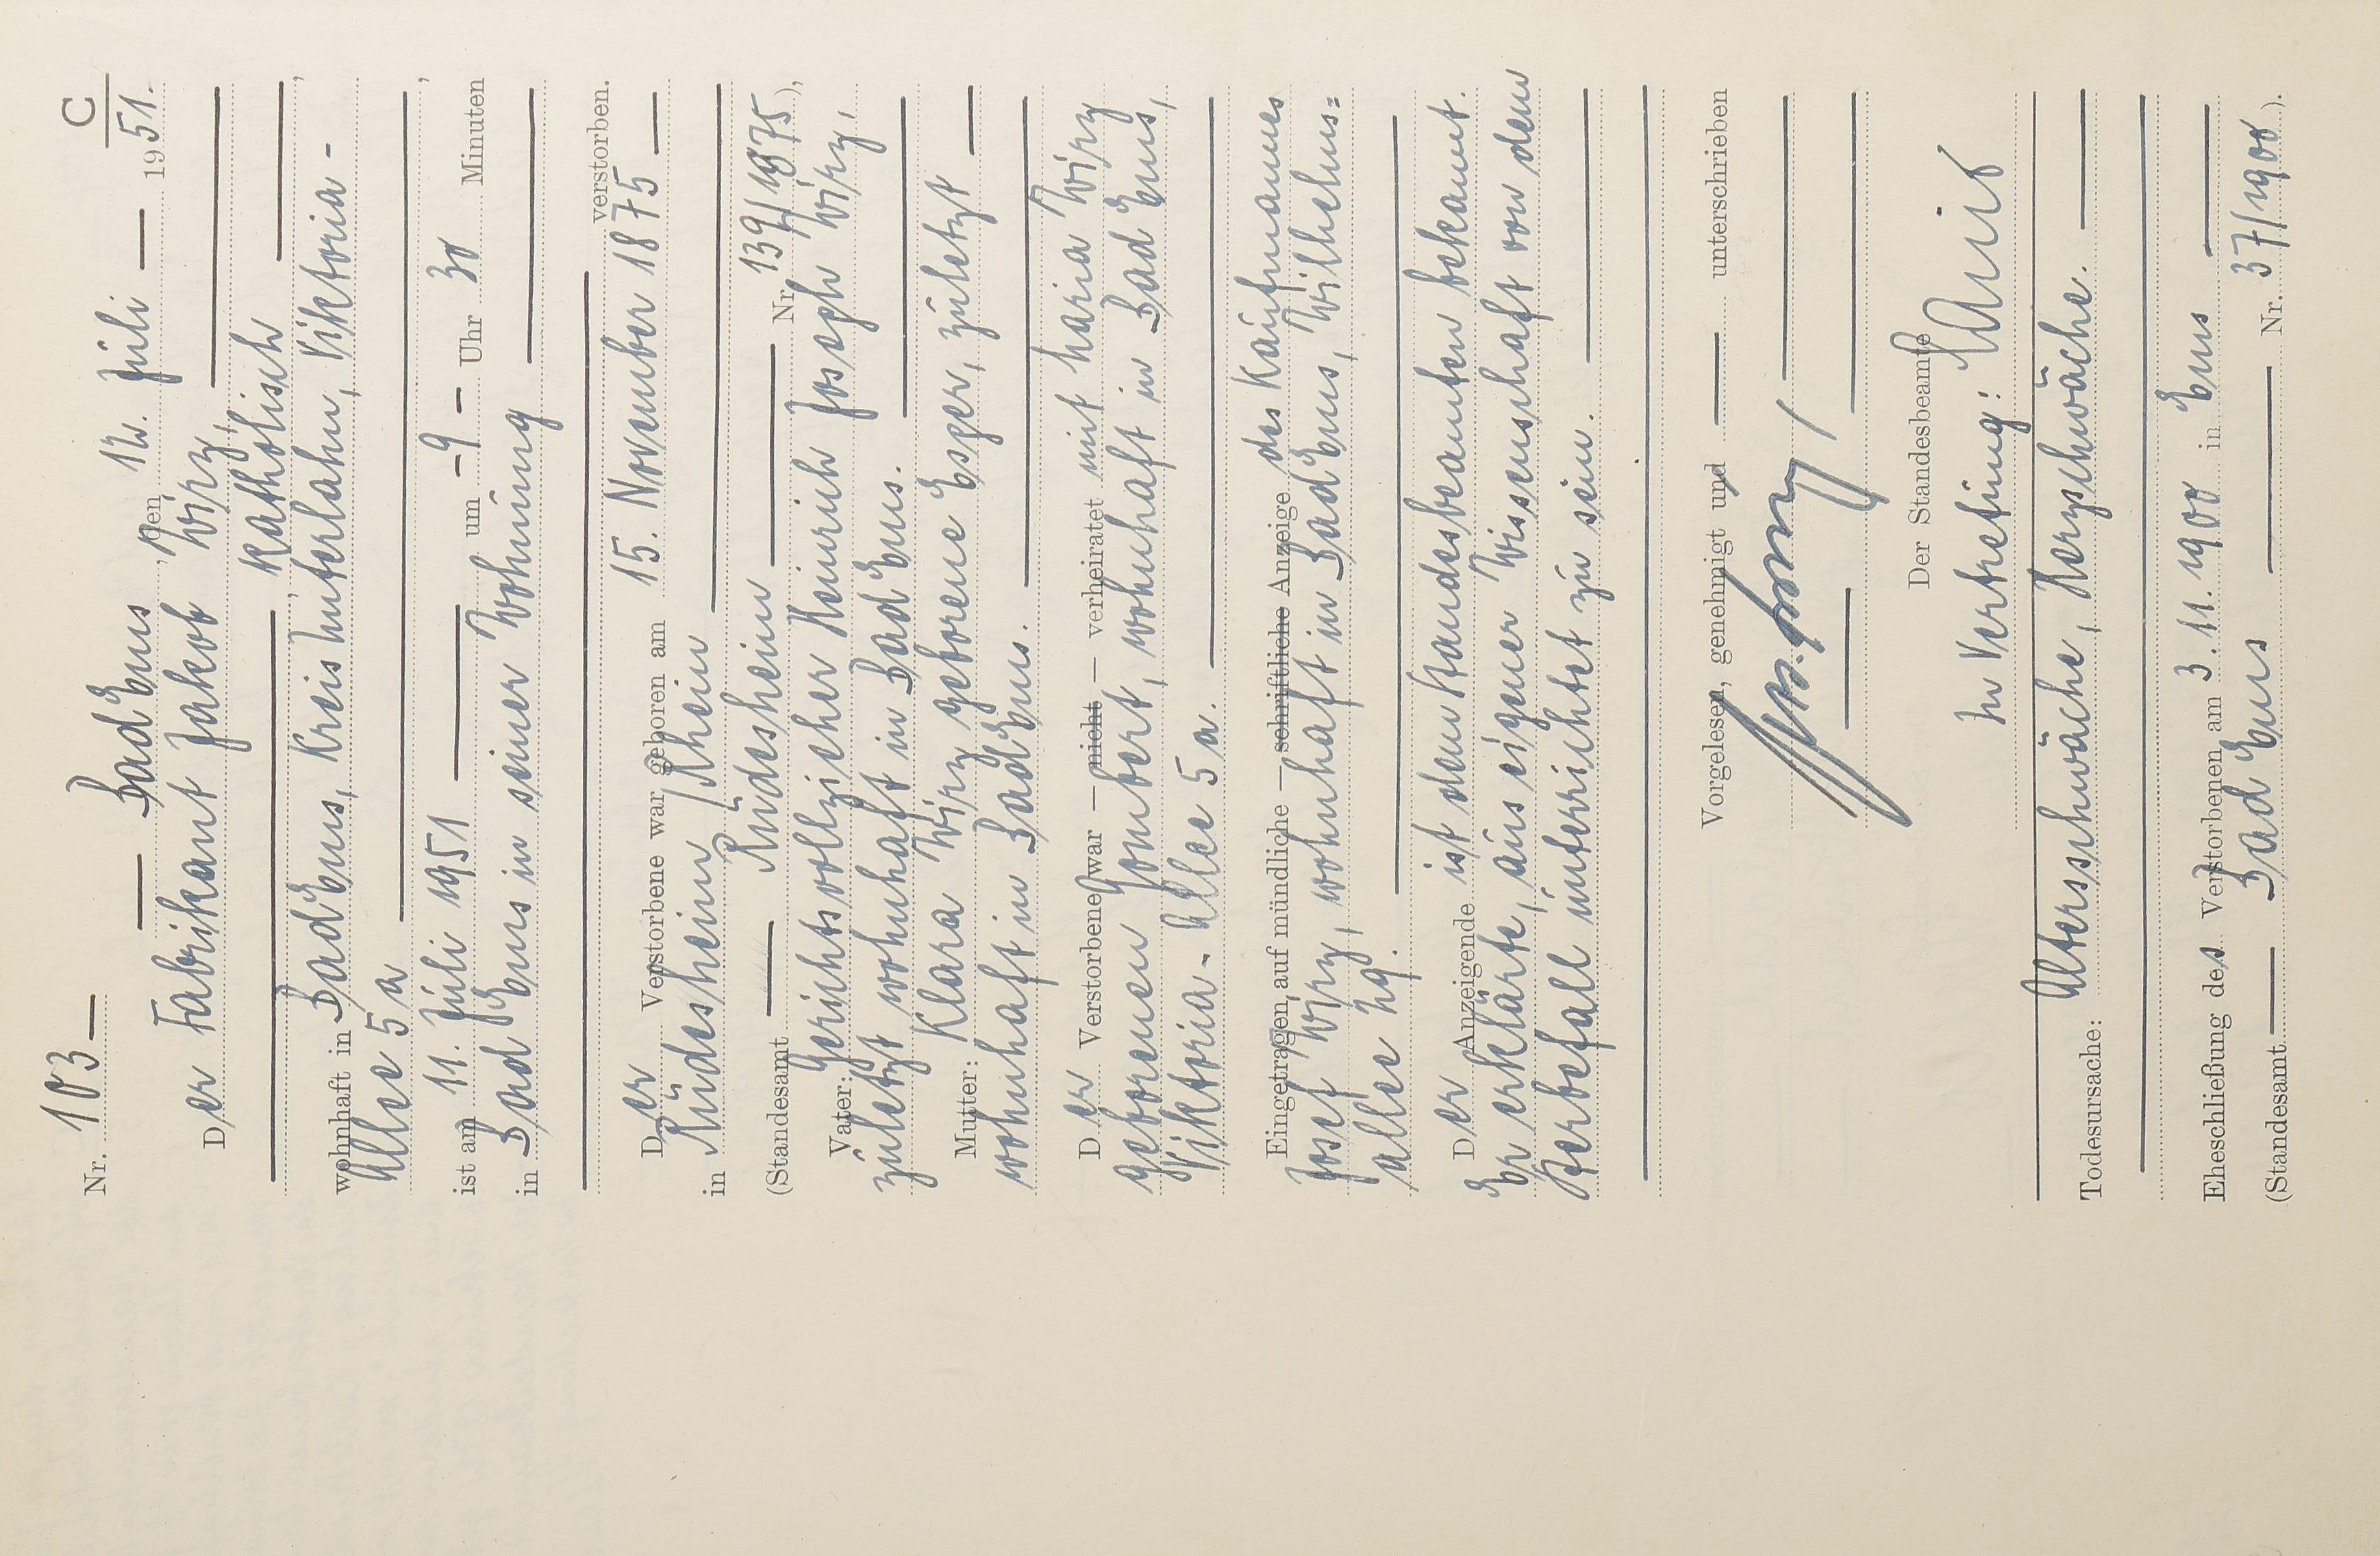 C
Nr. 103
Bad Ems, den 12. Juli 1951.
Der Fabrikant Jakob Wirz,
katholisch,
wohnhaft in Bad Ems, Kreis Unterlahn, Viktoria-
Allee 5 a,
ist am 11. Juli 1951 um -9- Uhr 30 Minuten
in Bad Ems in seiner Wohnung
verstorben.
Der Verstorbene war geboren am 15. November 1875
in Rüdesheim / Rhein
(Standesamt Rüdesheim Nr. 139/1875),
Vater: Gerichtsvollzieher Heinrich Joseph Wirz,
zuletzt wohnhaft in Bad Ems.
Mutter: Klara Wirz geborene Esper, zuletzt
wohnhaft in Bad Ems.
Der Verstorbene war — nicht — verheiratet mit Maria Wirz
geborenen Gombert, wohnhaft in Bad Ems,
Viktoria-Allee 5 a.
Eingetragen auf mündliche — schriftliche Anzeige des Kaufmannes
Josef Wirz, wohnhaft in Bad Ems, Wilhelms=
allee 29.
Der Anzeigende ist dem Standesbeamten bekannt.
Er erklärte, aus eigener Wissenschaft von dem
Sterbefall unterrichtet zu sein.
Vorgelesen, genehmigt und unterschrieben
Der Standesbeamte
In Vertretung:
Todesursache: Altersschwäche, Herzschwäche.
Eheschließung des Verstorbenen am 3. 11. 1900 in Ems
(Standesamt Bad Ems Nr. 37/1900).